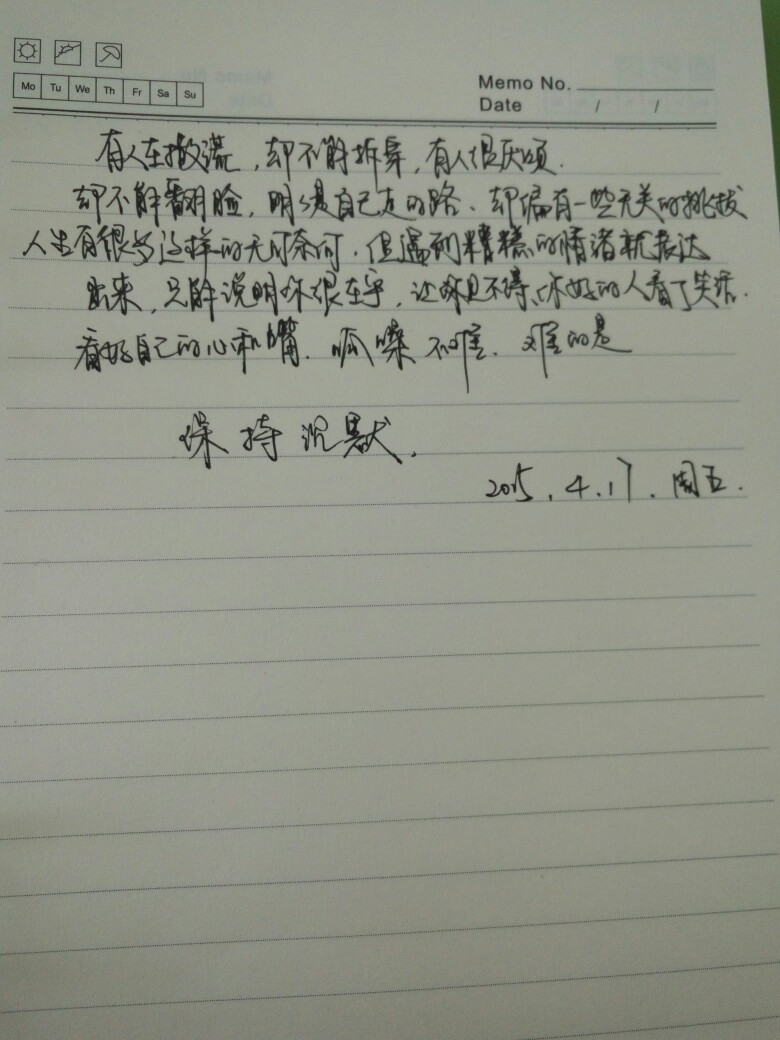 Mo Tu We Th Fr Sa Su
Memo No.
Date / /
有人在撒谎，却不能拆穿，有人很厌烦.
却不能翻脸，明明是自己走的路、却偏有一些无关的挑拨
人生有很多这样的无可奈何．但遇到糟糕的情绪就表达
出来，只能说明你很在乎，让见不得你好的人看了笑话.
看好自己的心和嘴．呱噪不难．难的是
保持沉默.
2015.4.17.周五.